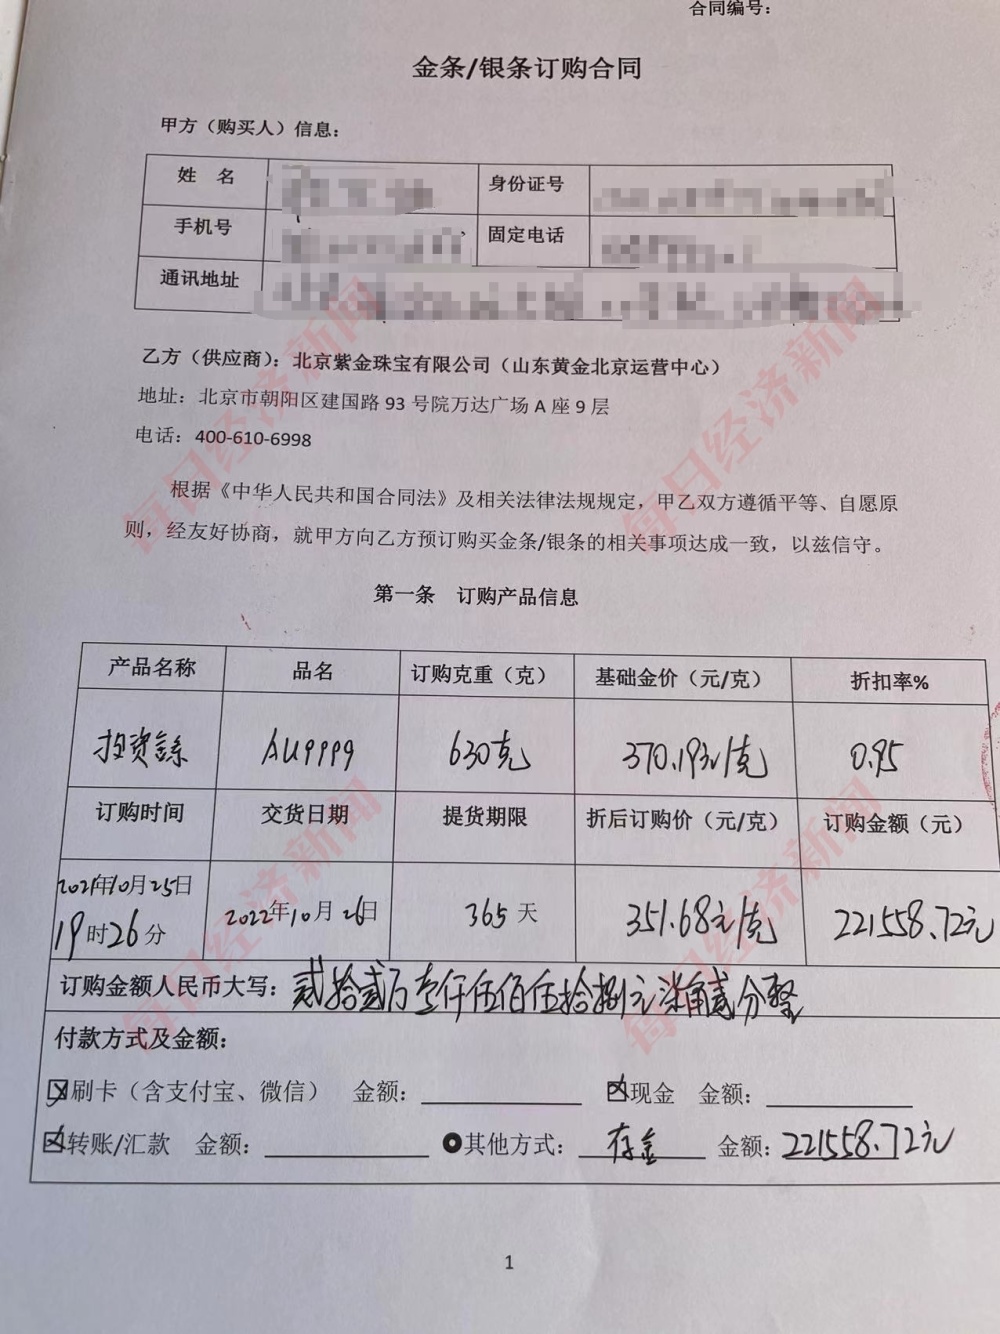 合同编号：
金条/银条订购合同
甲方（购买人）信息：
姓 名 身份证号
手机号 固定电话
通讯地址
乙方（供应商）：北京紫金珠宝有限公司（山东黄金北京运营中心）
地址：北京市朝阳区建国路 93 号院万达广场 A 座 9 层
电话：400-610-6998
根据《中华人民共和国合同法》及相关法律法规规定，甲乙双方遵循平等、自愿原
则，经友好协商，就甲方向乙方预订购买金条/银条的相关事项达成一致，以兹信守。
第一条 订购产品信息
产品名称 品名 订购克重（克） 基础金价（元/克） 折扣率%
投资金条 AU9999 630克 370.19元/克 0.95
订购时间 交货日期 提货期限 折后订购价（元/克） 订购金额（元）
2021年10月25日
19时26分 2022年10月26日 365天 351.68元/克 221558.72元
订购金额人民币大写：贰拾贰万壹仟伍佰伍拾捌元柒角贰分整
付款方式及金额：
刷卡（含支付宝、微信） 金额： 现金 金额：
转账/汇款 金额： 其他方式： 存金 金额：221558.72元
1
每日经济新闻
每日经济新闻
每日经济新闻
每日经济新闻